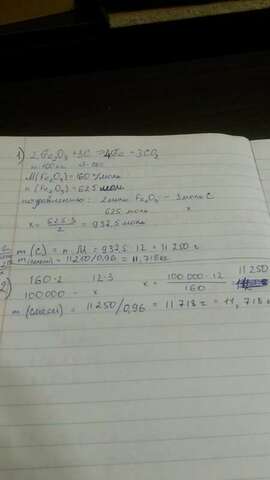 1) 2Fe₂O₃ + 3C = 4Fe + 3CO₂
m=100кг
M(Fe₂O₃)=160г/моль
n(Fe₂O₃)=625 моль
по уравнению: 2моль Fe₂O₃ - 3моль C
625 моль x
x = 625·3/2 = 937,5 моль
m(C) = n·M = 937,5·12 = 11 250 г
m(смеси) = 11250/0,96 = 11,718кг
2) 160·2 12·3 x = 100 000·12/160 11 250
100 000 - x
m(смеси) = 11 250/0,96 = 11 718 г = 11,718